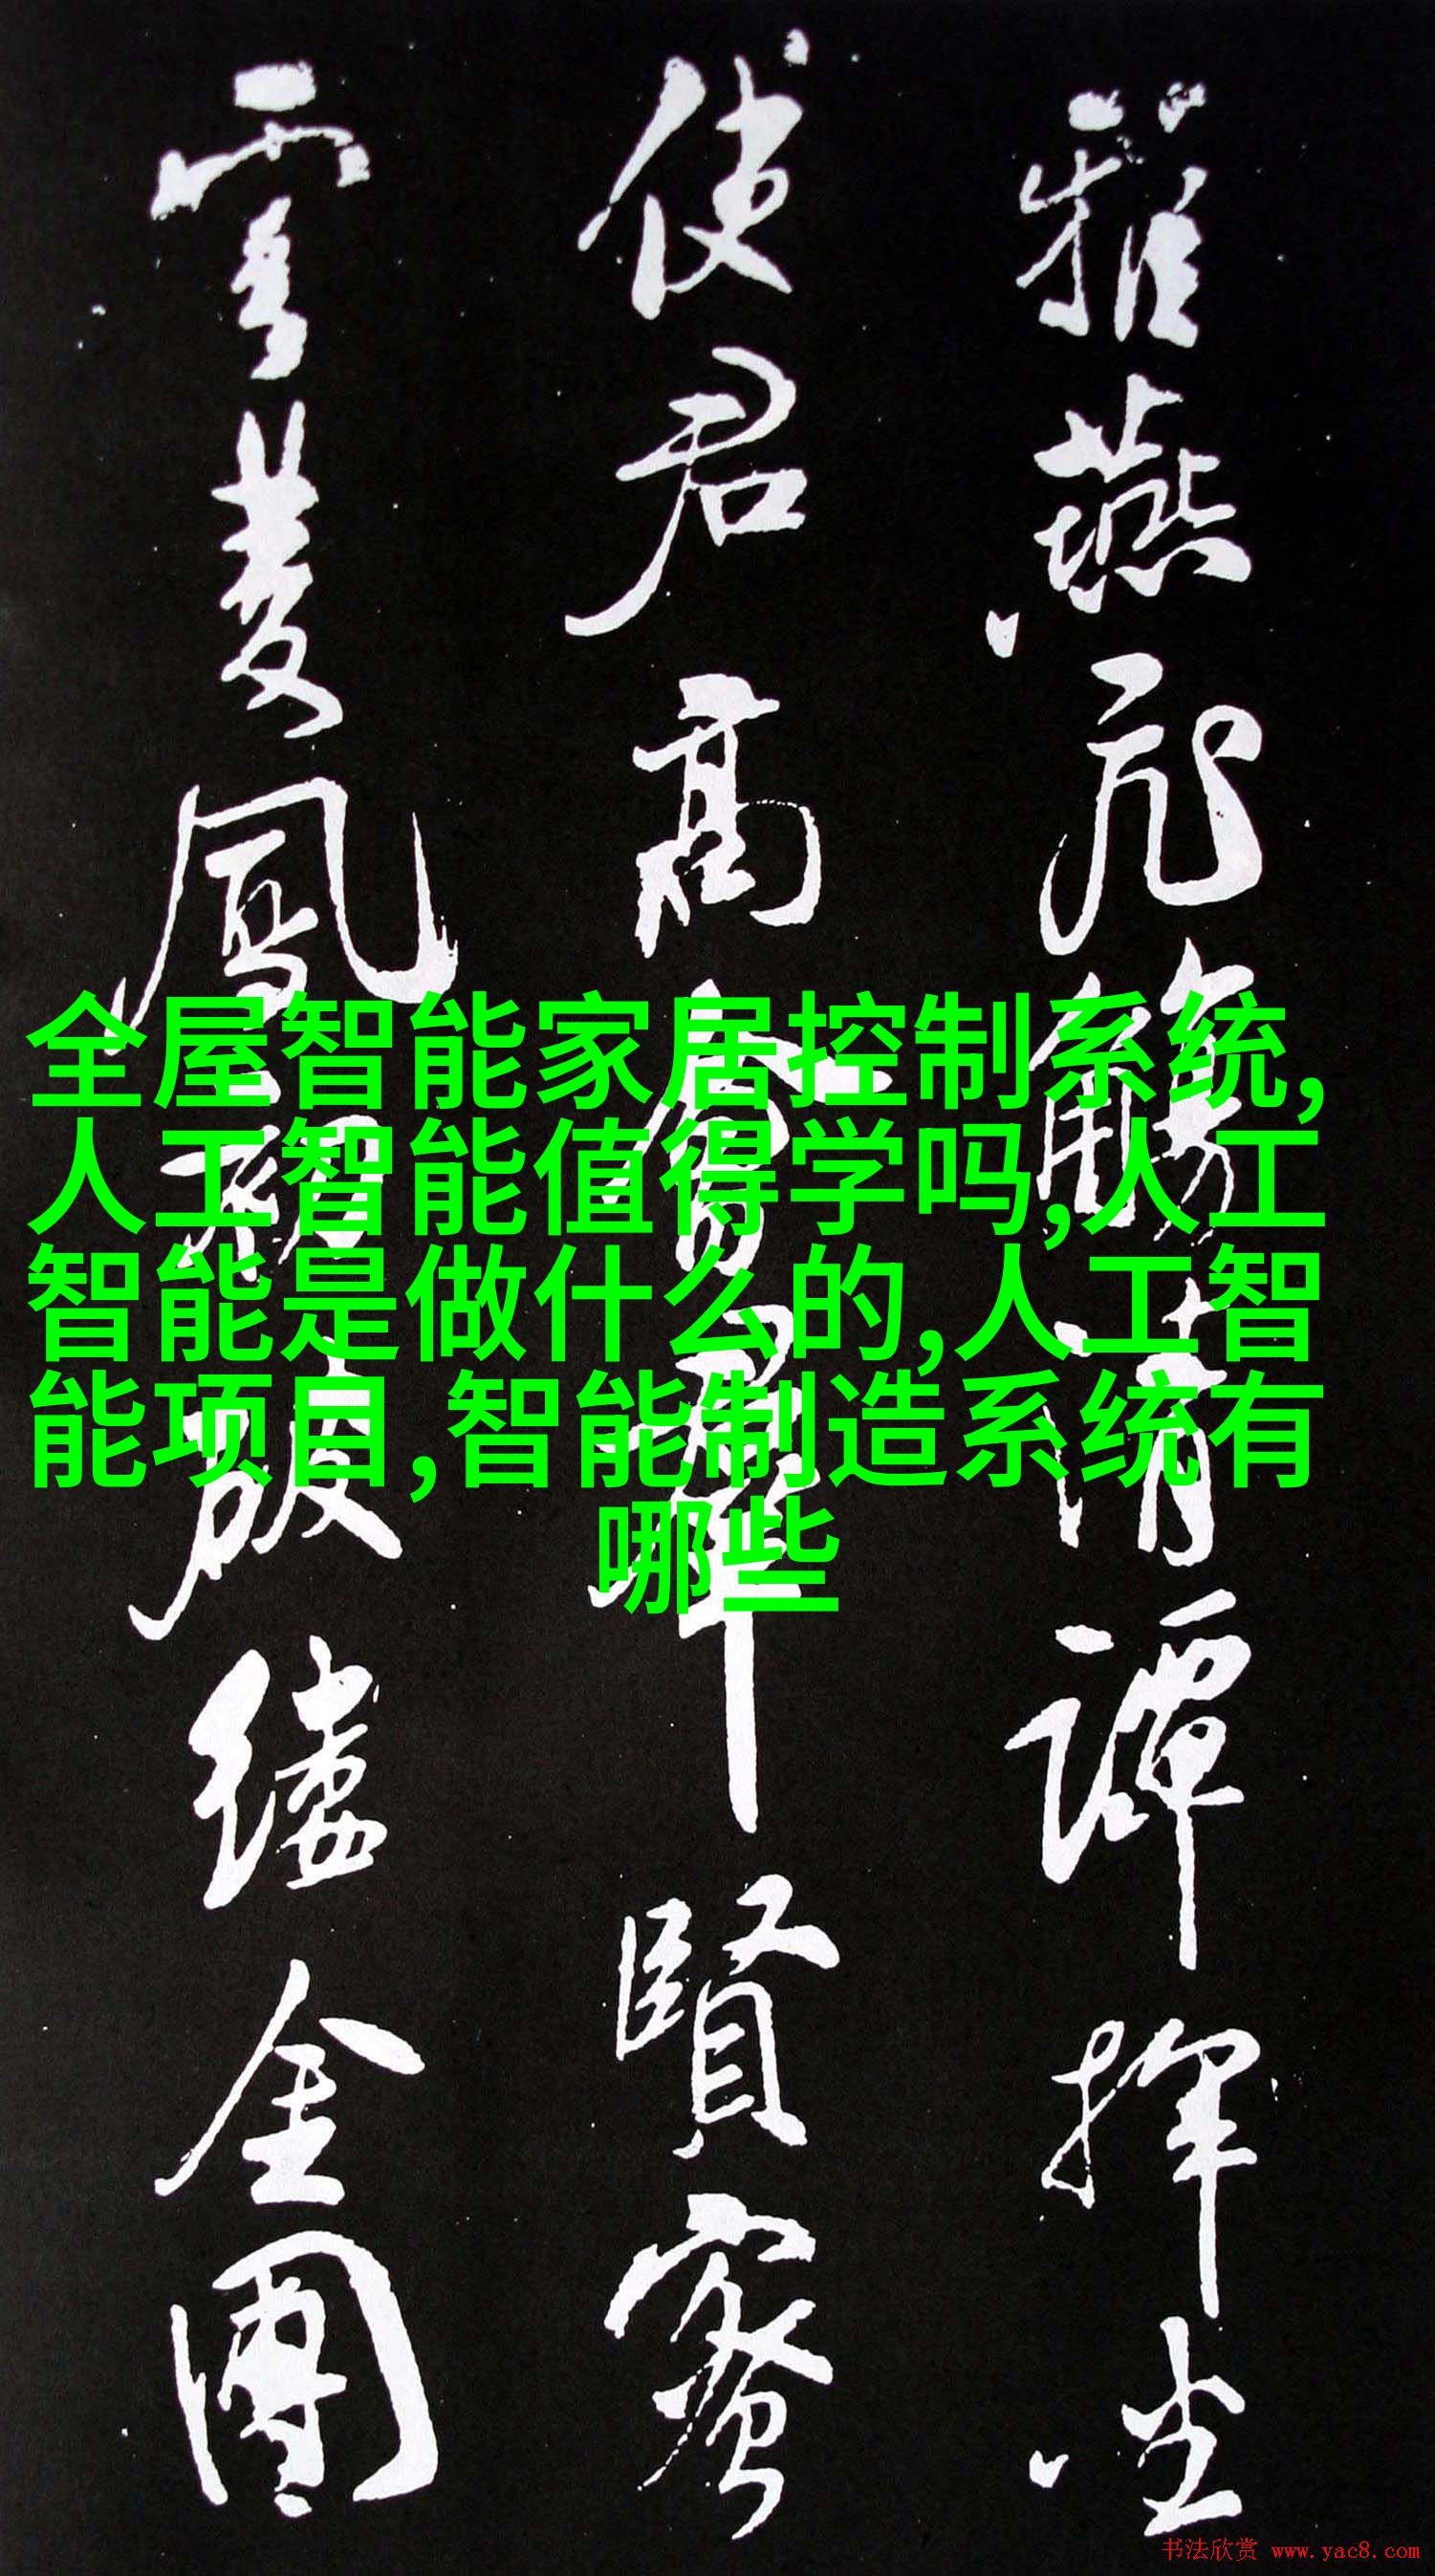 雅燕飛觴清譚揮坐
使君高會羣賢密
雲雙鳳初破縷金團
全屋智能家居控制系统,
人工智能值得学吗,人工
智能是做什么的,人工智
能项目,智能制造系统有
哪些
书法欣赏 www.yac8.com